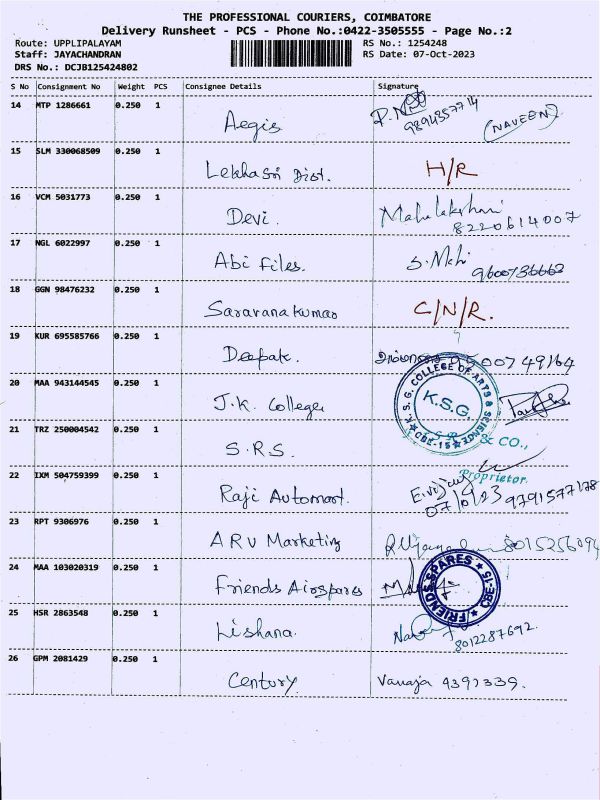 THE PROFESSIONAL COURIERS, COIMBATORE
Delivery Runsheet - PCS - Phone No.:0422-3505555 - Page No.:2
Route: UPPLIPALAYAM
RS No.: 1254248
Staff: JAYACHANDRAN
RS Date: 07-Oct-2023
DRS No.: DCJB125424802
S No Consignment No Weight PCS Consignee Details Signature
14 MTP 1286661 0.250 1 Aegis 9894357714 (NAVEEN)
15 SLM 330068509 0.250 1 Lekhasri Dist. H/R
16 VCM 5031773 0.250 1 Devi. Mahalakshmi 8220614007
17 NGL 6022997 0.250 1 Abi Files. 9600736663
18 GGN 98476232 0.250 1 Saravanakumar C/N/R.
19 KUR 695585766 0.250 1 Deepak.
20 MAA 943144545 0.250 1 J.K. College K.S.G. COLLEGE OF ARTS & SCIENCE K.S.G. CBE-15
21 TRZ 250004542 0.250 1 S.R.S. & CO.,
Proprietor.
22 IXM 504759399 0.250 1 Raji Automart. 07/10/23 9791577178
23 RPT 9306976 0.250 1 ARV Marketing 8015256094
24 MAA 103020319 0.250 1 Friends Airspares FRIENDS SPARES CBE-15
25 HSR 2863548 0.250 1 Lishana. 8012287692.
26 GPM 2081429 0.250 1 Century Vanaja 4397339.